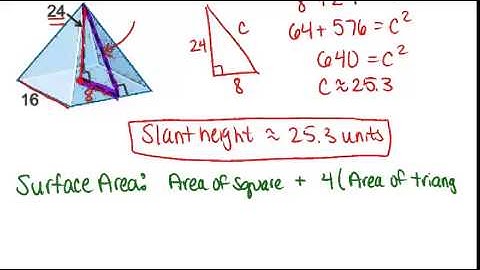 24
16
8
24
c
8
64 + 576 = c²
640 = c²
c ≈ 25.3
Slant height ≈ 25.3 units
Surface Area: Area of square + 4(Area of triang